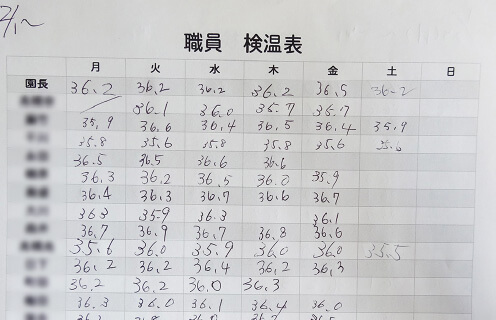 2/1〜
職員 検温表
月 火 水 木 金 土 日
園長 36.2 36.2 36.2 36.2 36.5 36.2
36.1 36.0 35.7 35.7
35.9 36.6 36.4 36.5 36.4 35.9
35.8 35.6 35.8 35.8 35.6
36.5 36.5 36.6 36.6
36.3 36.2 36.5 36.0 35.9
36.4 36.3 36.7 36.6 36.7
36.3 35.9 36.3 36.1
36.7 36.9 36.7 36.8 36.6
35.6 36.0 35.9 36.0 36.0 35.5
36.2 36.2 36.4 36.2 36.3
36.2 36.2 36.0 36.3
36.3 36.0 36.1 36.4 36.0